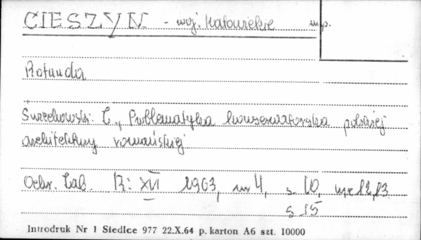 CIESZYN - woj. Katowickie
Rotunda
Świechowski Z., Problematyka konserwatorska polskiej
architektury romańskiej
Ochr. Zab. R: XVI 1963, nr 4, s. 10, ryc 12, 13
s 15
Introdruk Nr 1 Siedlce 977 22.X.64 p. karton A6 szt. 10000